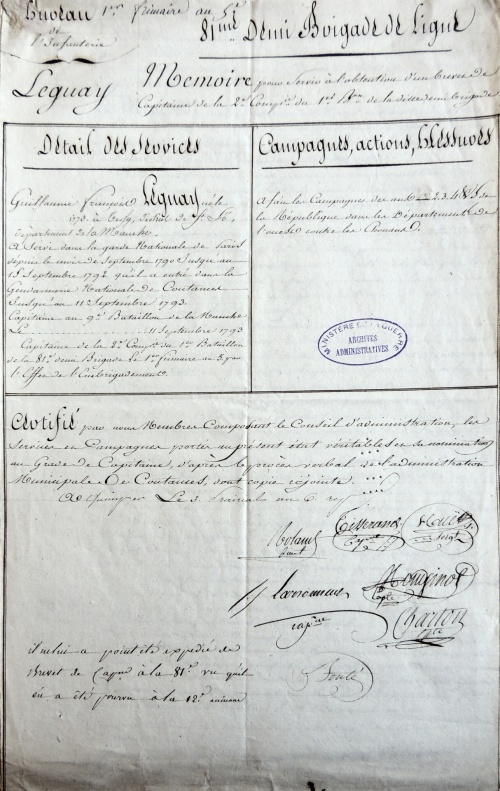 Bureau
de
l'Infanterie
1er frimaire an 5e
81me Demi Brigade de Ligne
Leguay
Memoire pour servir à l'obtention d'un brevet de
Capitaine de la 2e Compie du 1er Bon de la ditte demi brigade
Détail des Services
Guillaume François Leguay né le
1773 à
département de la Manche.
A Servi dans la garde Nationale de Paris
depuis le mois de Septembre 1790 jusqu'au
15 Septembre 1792 qu'il a entré dans la
Gendarmerie Nationale de Coutances
jusqu'au 11 Septembre 1793.
Capitaine au 9e Bataillon de la Manche
Le 11 Septembre 1793
Capitaine de la 2e Compie du 1er Bataillon
de la 81e demi Brigade Le 1er frimaire an 5, par
l'Effet de l'Embrigadement
Campagnes, actions, blessures
A fait les Campagnes des ans 2.3.4 & 5 de
la République dans les Départements de
l'ouest contre les Chouans.
MINISTÈRE DE LA GUERRE
ARCHIVES
ADMINISTRATIVES
Certifié par nous Membres Composant le Conseil d'administration, les
Services et Campagnes portés au présent état véritables et sa nomination
au Grade de Capitaine, d'après le procès verbal de l'administration
Municipale de Coutances, dont copie cijointe
A Quimper Le 3 Prairial an 6 rep
Tisserand
Mouginot
capne
Barton
il ne lui a point été expedié de
Brevet de Capne à la 81e vu qu'il
en a été pourvu à la 12e